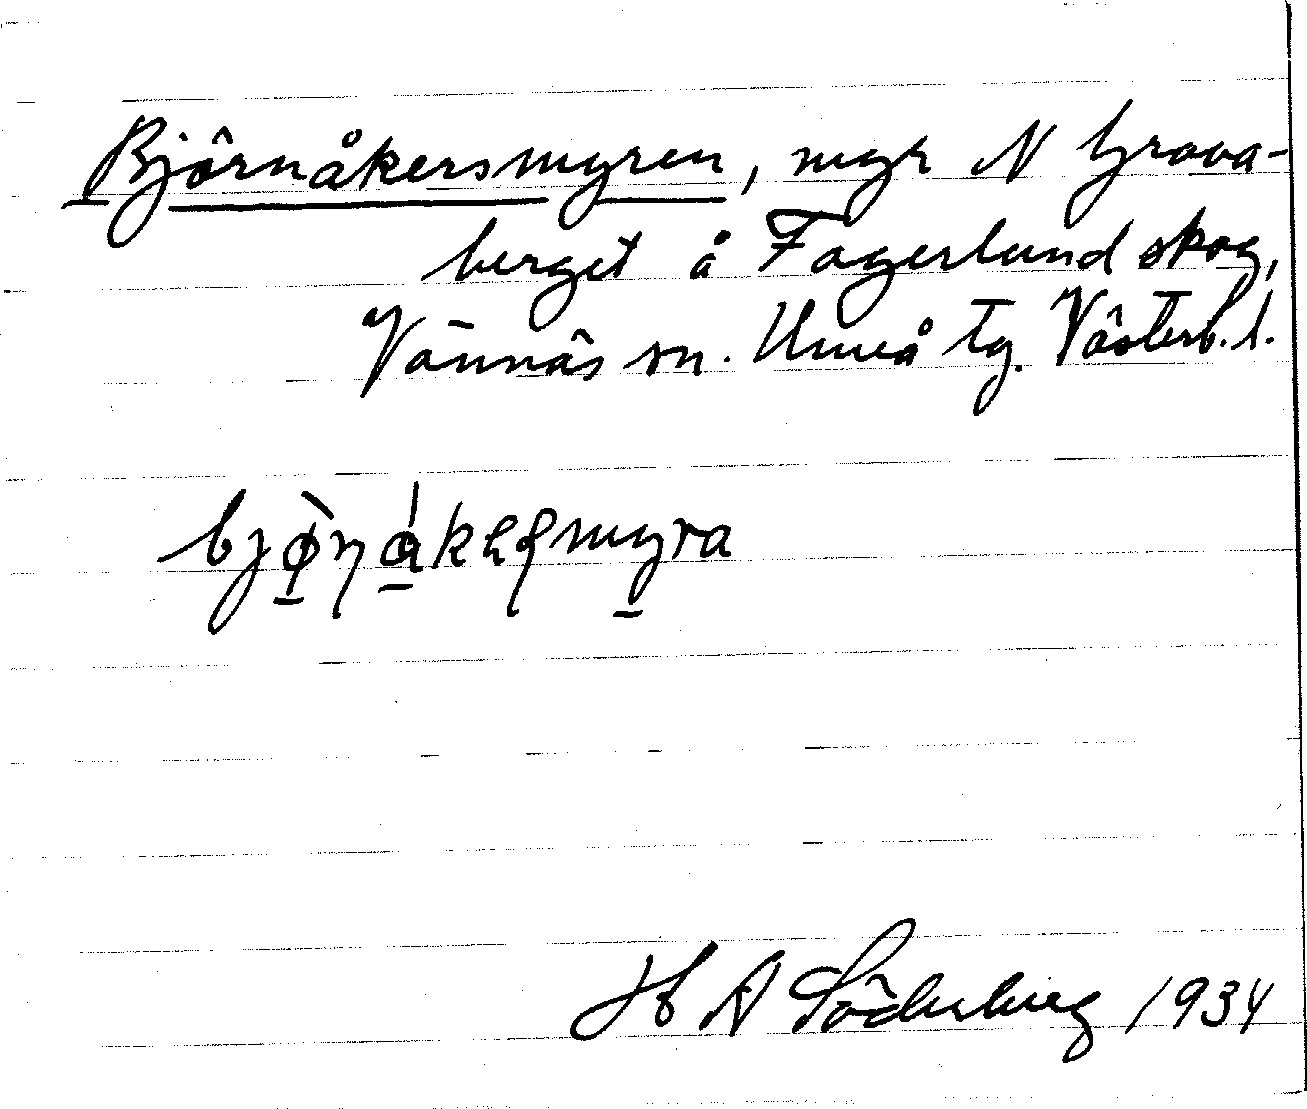 Björnåkersmyren, myr N Grava-
berget å Fagerlund skog,
Vännäs sn. Umeå tg. Västerb. l.
bjø̀ɳákəʂmyra
H A Söderberg 1934